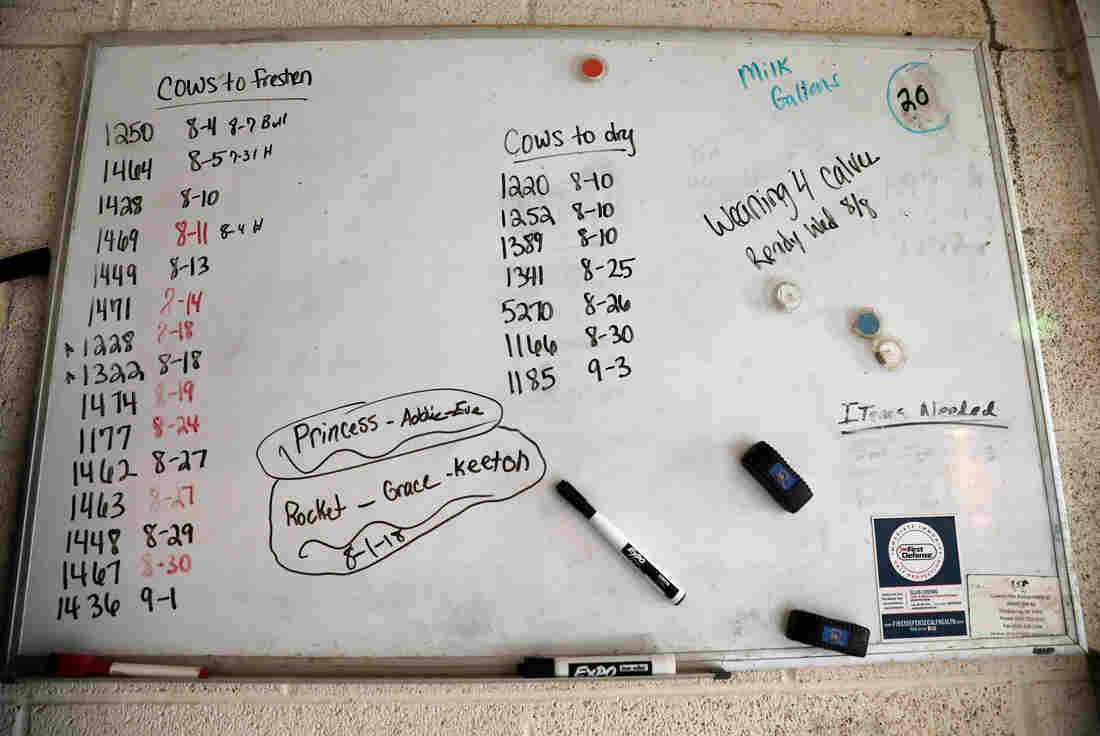 Cows to freshen
1250 8-4 8-7 Bull
1464 8-5 7-31 H
1428 8-10
1469 8-11 8-4 H
1449 8-13
1471 8-14
1228 8-18
1322 8-18
1474 8-19
1177 8-24
1462 8-27
1463 8-27
1448 8-29
1467 8-30
1436 9-1
Cows to dry
1220 8-10
1252 8-10
1389 8-10
1341 8-25
5270 8-26
1166 8-30
1185 9-3
Princess - Addie-Eve
Rocket - Grace - Keeton
8-1-18
Milk
Gallons
20
Weaning 4 Calves
Ready Wed 8/8
Items Needed
First
Defense
www.FIRSTDEFENSECALFHEALTH.com
EXPO
EXPO